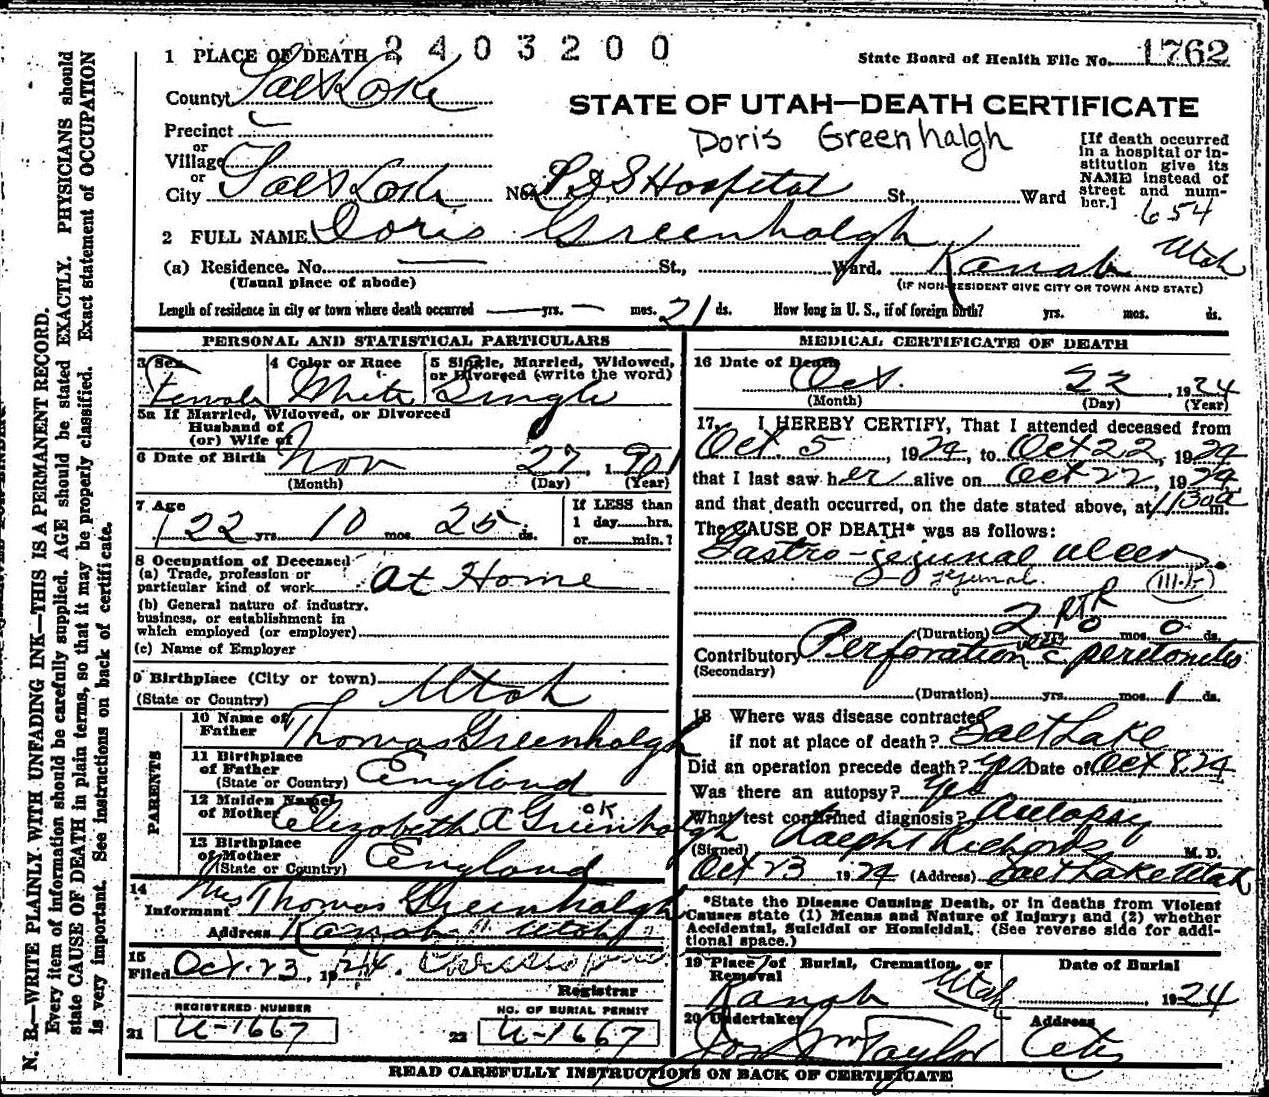 1 PLACE OF DEATH 2403200
State Board of Health File No. 1762
County Salt Lake
STATE OF UTAH—DEATH CERTIFICATE
Precinct
Doris Greenhalgh
or
Village
or
City Salt Lake No. L D S Hospital St., Ward
[If death occurred
in a hospital or in-
stitution give its
NAME instead of
street and num-
ber.]
654
2 FULL NAME Doris Greenhalgh
(a) Residence. No. — St., Ward. Kanab Utah
(Usual place of abode) (IF NON-RESIDENT GIVE CITY OR TOWN AND STATE)
Length of residence in city or town where death occurred — yrs. — mos. 21 ds. How long in U. S., if of foreign birth? yrs. mos. ds.
PERSONAL AND STATISTICAL PARTICULARS
3 Sex 4 Color or Race 5 Single, Married, Widowed,
or Divorced (write the word)
Female White Single
5a If Married, Widowed, or Divorced
Husband of
(or) Wife of
6 Date of Birth Nov 27, 1901
(Month) (Day) (Year)
7 Age
22 yrs. 10 mos. 25 ds.
If LESS than
1 day......hrs.
or......min.?
8 Occupation of Deceased
(a) Trade, profession or
particular kind of work At Home
(b) General nature of industry.
business, or establishment in
which employed (or employer)
(c) Name of Employer
9 Birthplace (City or town)
(State or Country) Utah
PARENTS
10 Name of
Father Thomas Greenhalgh
11 Birthplace
of Father
(State or Country) England
12 Maiden Name
of Mother Elizabeth A Greenhalgh OK
13 Birthplace
of Mother
(State or Country) England
14
Informant Mrs Thomas Greenhalgh
Address Kanab Utah
15
Filed Oct. 23, 1924.
Registrar
REGISTERED NUMBER NO. OF BURIAL PERMIT
21 U-1667 22 U-1667
MEDICAL CERTIFICATE OF DEATH
16 Date of Death
Oct. 22, 1924
(Month) (Day) (Year)
17. I HEREBY CERTIFY, That I attended deceased from
Oct. 5, 1924, to Oct 22, 1924
that I last saw her alive on Oct 22, 1924
and that death occurred, on the date stated above, at 1130a m.
The CAUSE OF DEATH* was as follows:
Gastro-jejunal ulcer.
jejunal
(Duration) 2 yrs. 0 mos. 0 ds.
Contributory Perforation c peritonitis
(Secondary)
(Duration) yrs. mos. 1 ds.
18 Where was disease contracted
if not at place of death? Salt Lake
Did an operation precede death? Yes Date of Oct 8, 24
Was there an autopsy? Yes
What test confirmed diagnosis? Autopsy
(Signed) Ralph T Richards M. D.
Oct 23 1924 (Address) Salt Lake Utah
*State the Disease Causing Death, or in deaths from Violent
Causes state (1) Means and Nature of Injury; and (2) whether
Accidental, Suicidal or Homicidal. (See reverse side for addi-
tional space.)
19 Place of Burial, Cremation, or
Removal
Kanab Utah
Date of Burial
, 1924
20 Undertaker Address
Jos Wm Taylor City
READ CAREFULLY INSTRUCTIONS ON BACK OF CERTIFICATE
N. B.—WRITE PLAINLY WITH UNFADING INK—THIS IS A PERMANENT RECORD.
Every item of information should be carefully supplied. AGE should be stated EXACTLY. PHYSICIANS should
state CAUSE OF DEATH in plain terms, so that it may be properly classified. Exact statement of OCCUPATION
is very important. See instructions on back of certificate.